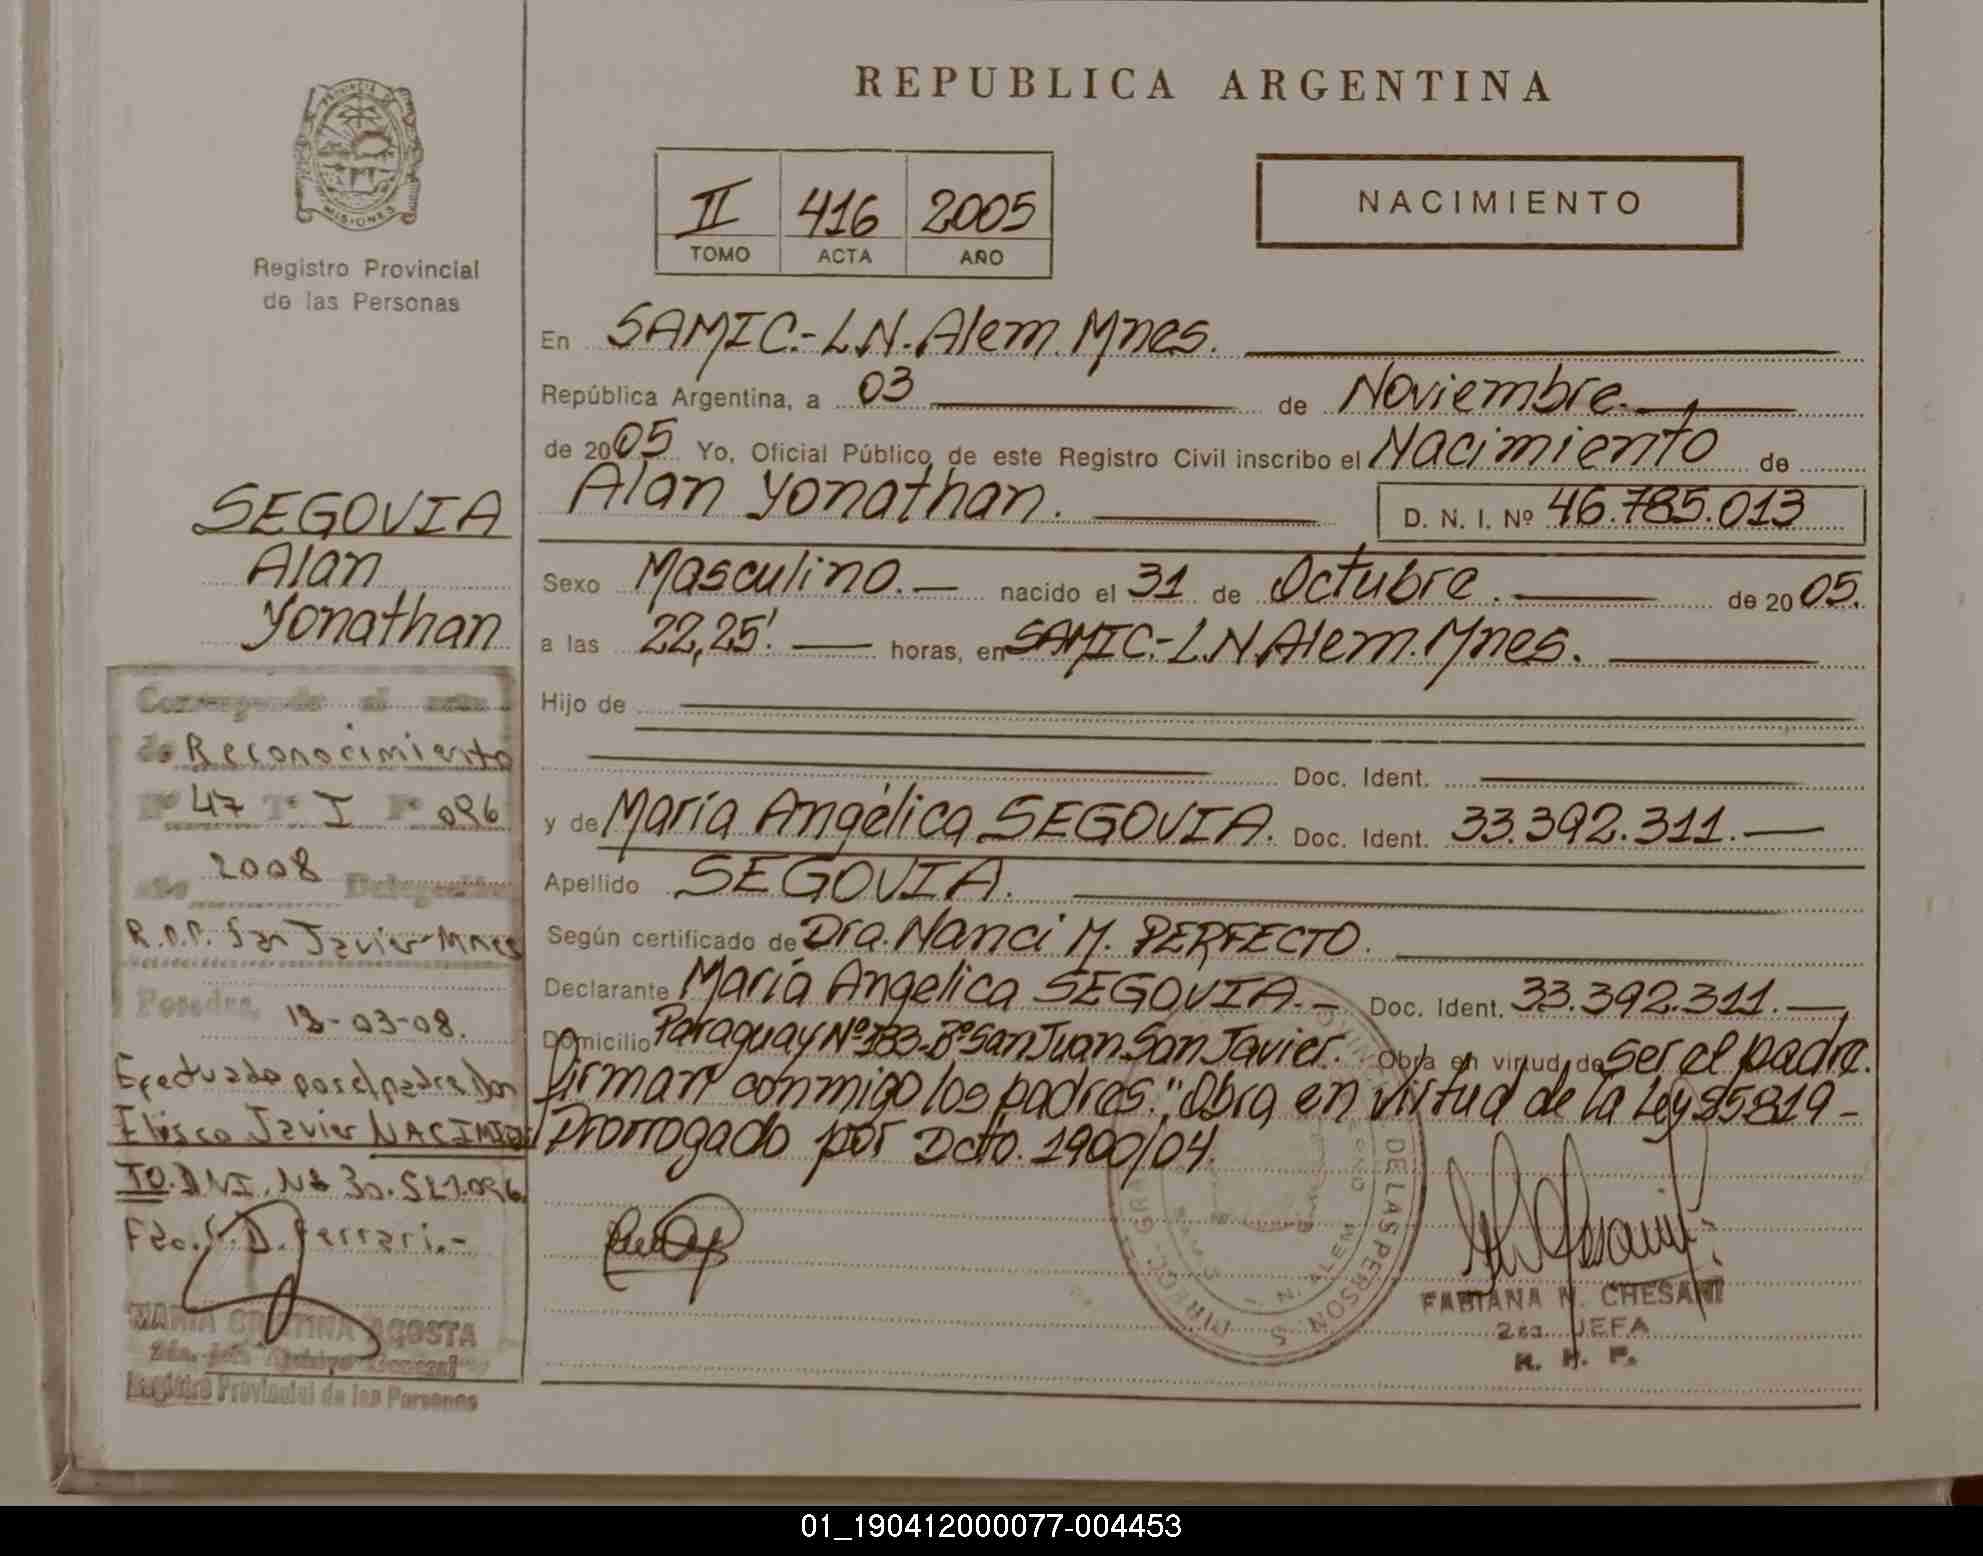 REPUBLICA ARGENTINA
NACIMIENTO
II 416 2005
TOMO ACTA AÑO
PROVINCIA DE
MISIONES
Registro Provincial
de las Personas
SEGOVIA
Alan
Yonathan
Corresponde al acta
de Reconocimiento
Nº 47 Tº I Fº 096
año 2008 Delegación
R.P.P. San Javier-Mnes
Posadas, 18-03-08.
Efectuado por el padre Don
Eliseo Javier NACIMIEN
TO. DNI. Nº 30.521.096.
Fdo. D. Ferrari.-
MARIA CRISTINA ACOSTA
2da. Jefa Archivo General
Registro Provincial de las Personas
En SAMIC.-L.N.Alem.Mnes.
República Argentina, a 03 de Noviembre.
de 2005 Yo, Oficial Público de este Registro Civil inscribo el Nacimiento de
Alan Yonathan. D. N. I. Nº 46.785.013
Sexo Masculino.- nacido el 31 de Octubre. de 2005.
a las 22,25'. horas, en SAMIC.-L.N.Alem.Mnes.
Hijo de
Doc. Ident.
y de María Angélica SEGOVIA. Doc. Ident. 33.392.311.-
Apellido SEGOVIA.
Según certificado de Dra. Nanci M. PERFECTO.
Declarante María Angelica SEGOVIA.- Doc. Ident. 33.392.311.-
Domicilio Paraguay Nº183-Bº San Juan San Javier. Obra en virtud de Ser el padre.
Firman conmigo los padres." Obra en virtud de la Ley 25819-
Prorrogado por Dcto. 1900/04.
DE LAS PERSONAS
N. ALEM
FABIANA N. CHESANI
2da. JEFA